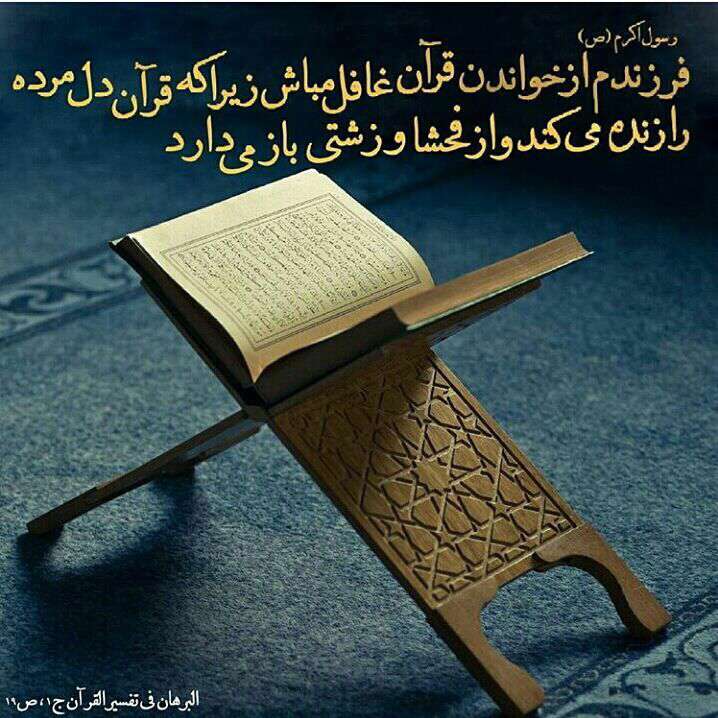 رسول اکرم (ص)
فرزندم از خواندن قرآن غافل مباش زیرا که قرآن دل مرده
را زنده می‌کند و از فحشا و زشتی باز می‌دارد
البرهان فی تفسیر القرآن ج۱، ص۱۹